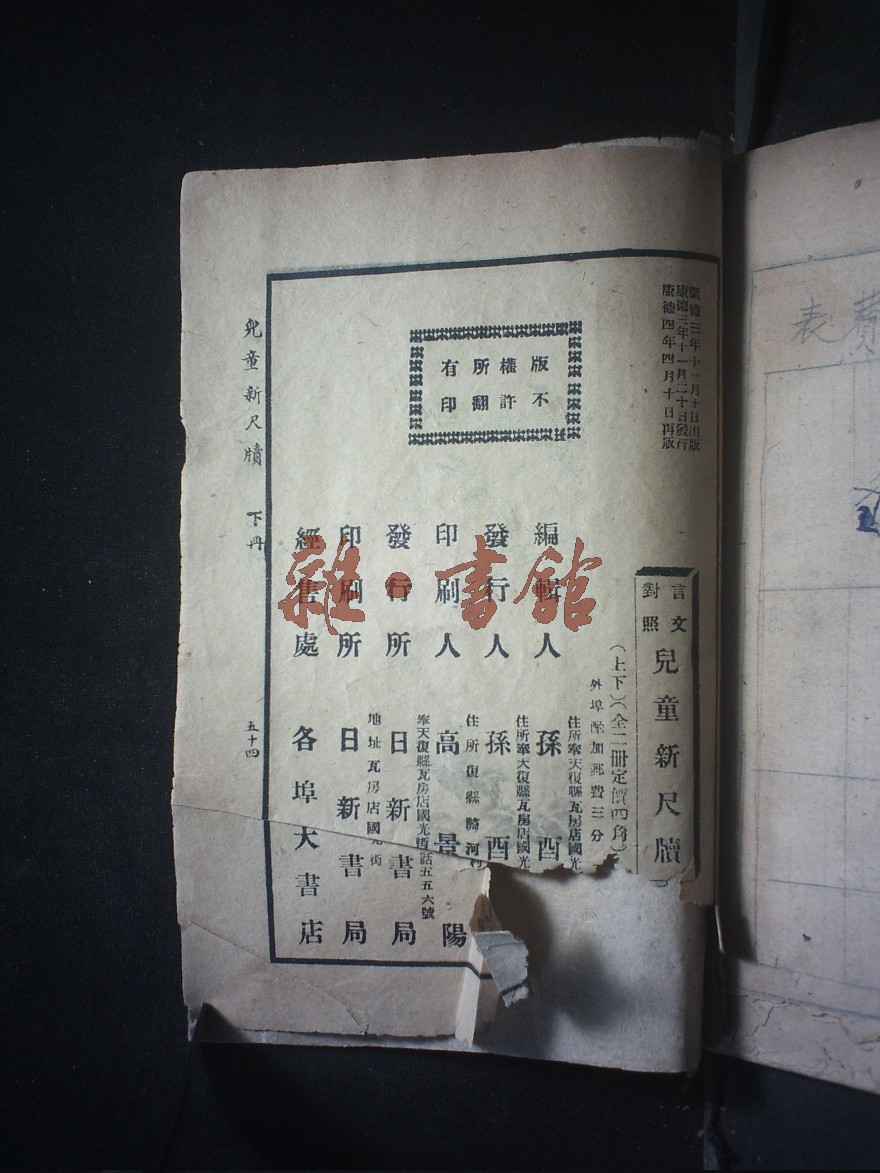 康德三年十一月十日出版
康德三年十一月二十日發行
康德四年四月十日再版
言文對照
兒童新尺牘
(上下)(全二冊定價四角)
外埠酌加郵費三分
版權所有
不許翻印
編輯人 孫酉
住所奉天復縣瓦房店國光
發行人 孫酉
住所奉天復縣瓦房店國光
印刷人 高景陽
住所復縣騎河
發行所 日新書局
奉天復縣瓦房店國光街話五五六號
印刷所 日新書局
地址瓦房店國光街
經售處 各埠大書店
兒童新尺牘 下冊 五十四
雜·書館
費表